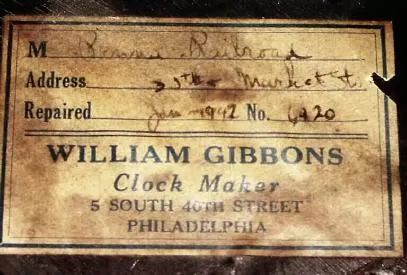 M Penna Railroad
Address Market St.
Repaired Jan 1942 No. 6920
WILLIAM GIBBONS
Clock Maker
5 SOUTH 40TH STREET
PHILADELPHIA